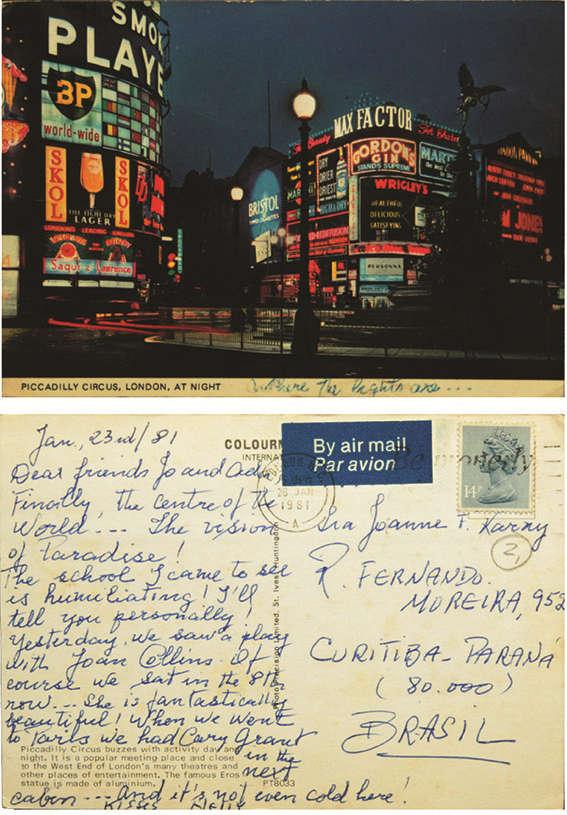 SMOK
PLAYE
BP
world-wide
SKOL
SKOL
LAGER
MAX FACTOR
GORDON'S
GIN
STANDS SUPREME
MART
WRIGLEY'S
HEALTHFUL
DELICIOUS
SATISFYING
BRISTOL
JONES
PICCADILLY CIRCUS, LONDON, AT NIGHT
where the lights are ---
Jan, 23rd/81
COLOUR
INTERNA
By air mail
Par avion
28 JAN
1981
A
14P
Dear friends Jo and
Finally, the centre of the
World --- The vision
of Paradise!
The school I came to see
is humiliating! I'll
tell you personally.
Yesterday we saw a play
with Joan Collins. Of
course we sat in the 8th
row --- She is fantastically
beautiful! When we went
to Paris we had Cary Grant
in the
next
cabin --- And it's not even cold here!
KISSES
Sra Joanne F. Karny
2,
R. FERNANDO
MOREIRA, 952
CURITIBA - PARANÁ
(80.000)
BRASIL
Piccadilly Circus buzzes with activity day and
night. It is a popular meeting place and close
to the West End of London's many theatres and
other places of entertainment. The famous Eros
statue is made of aluminium.
PT8033